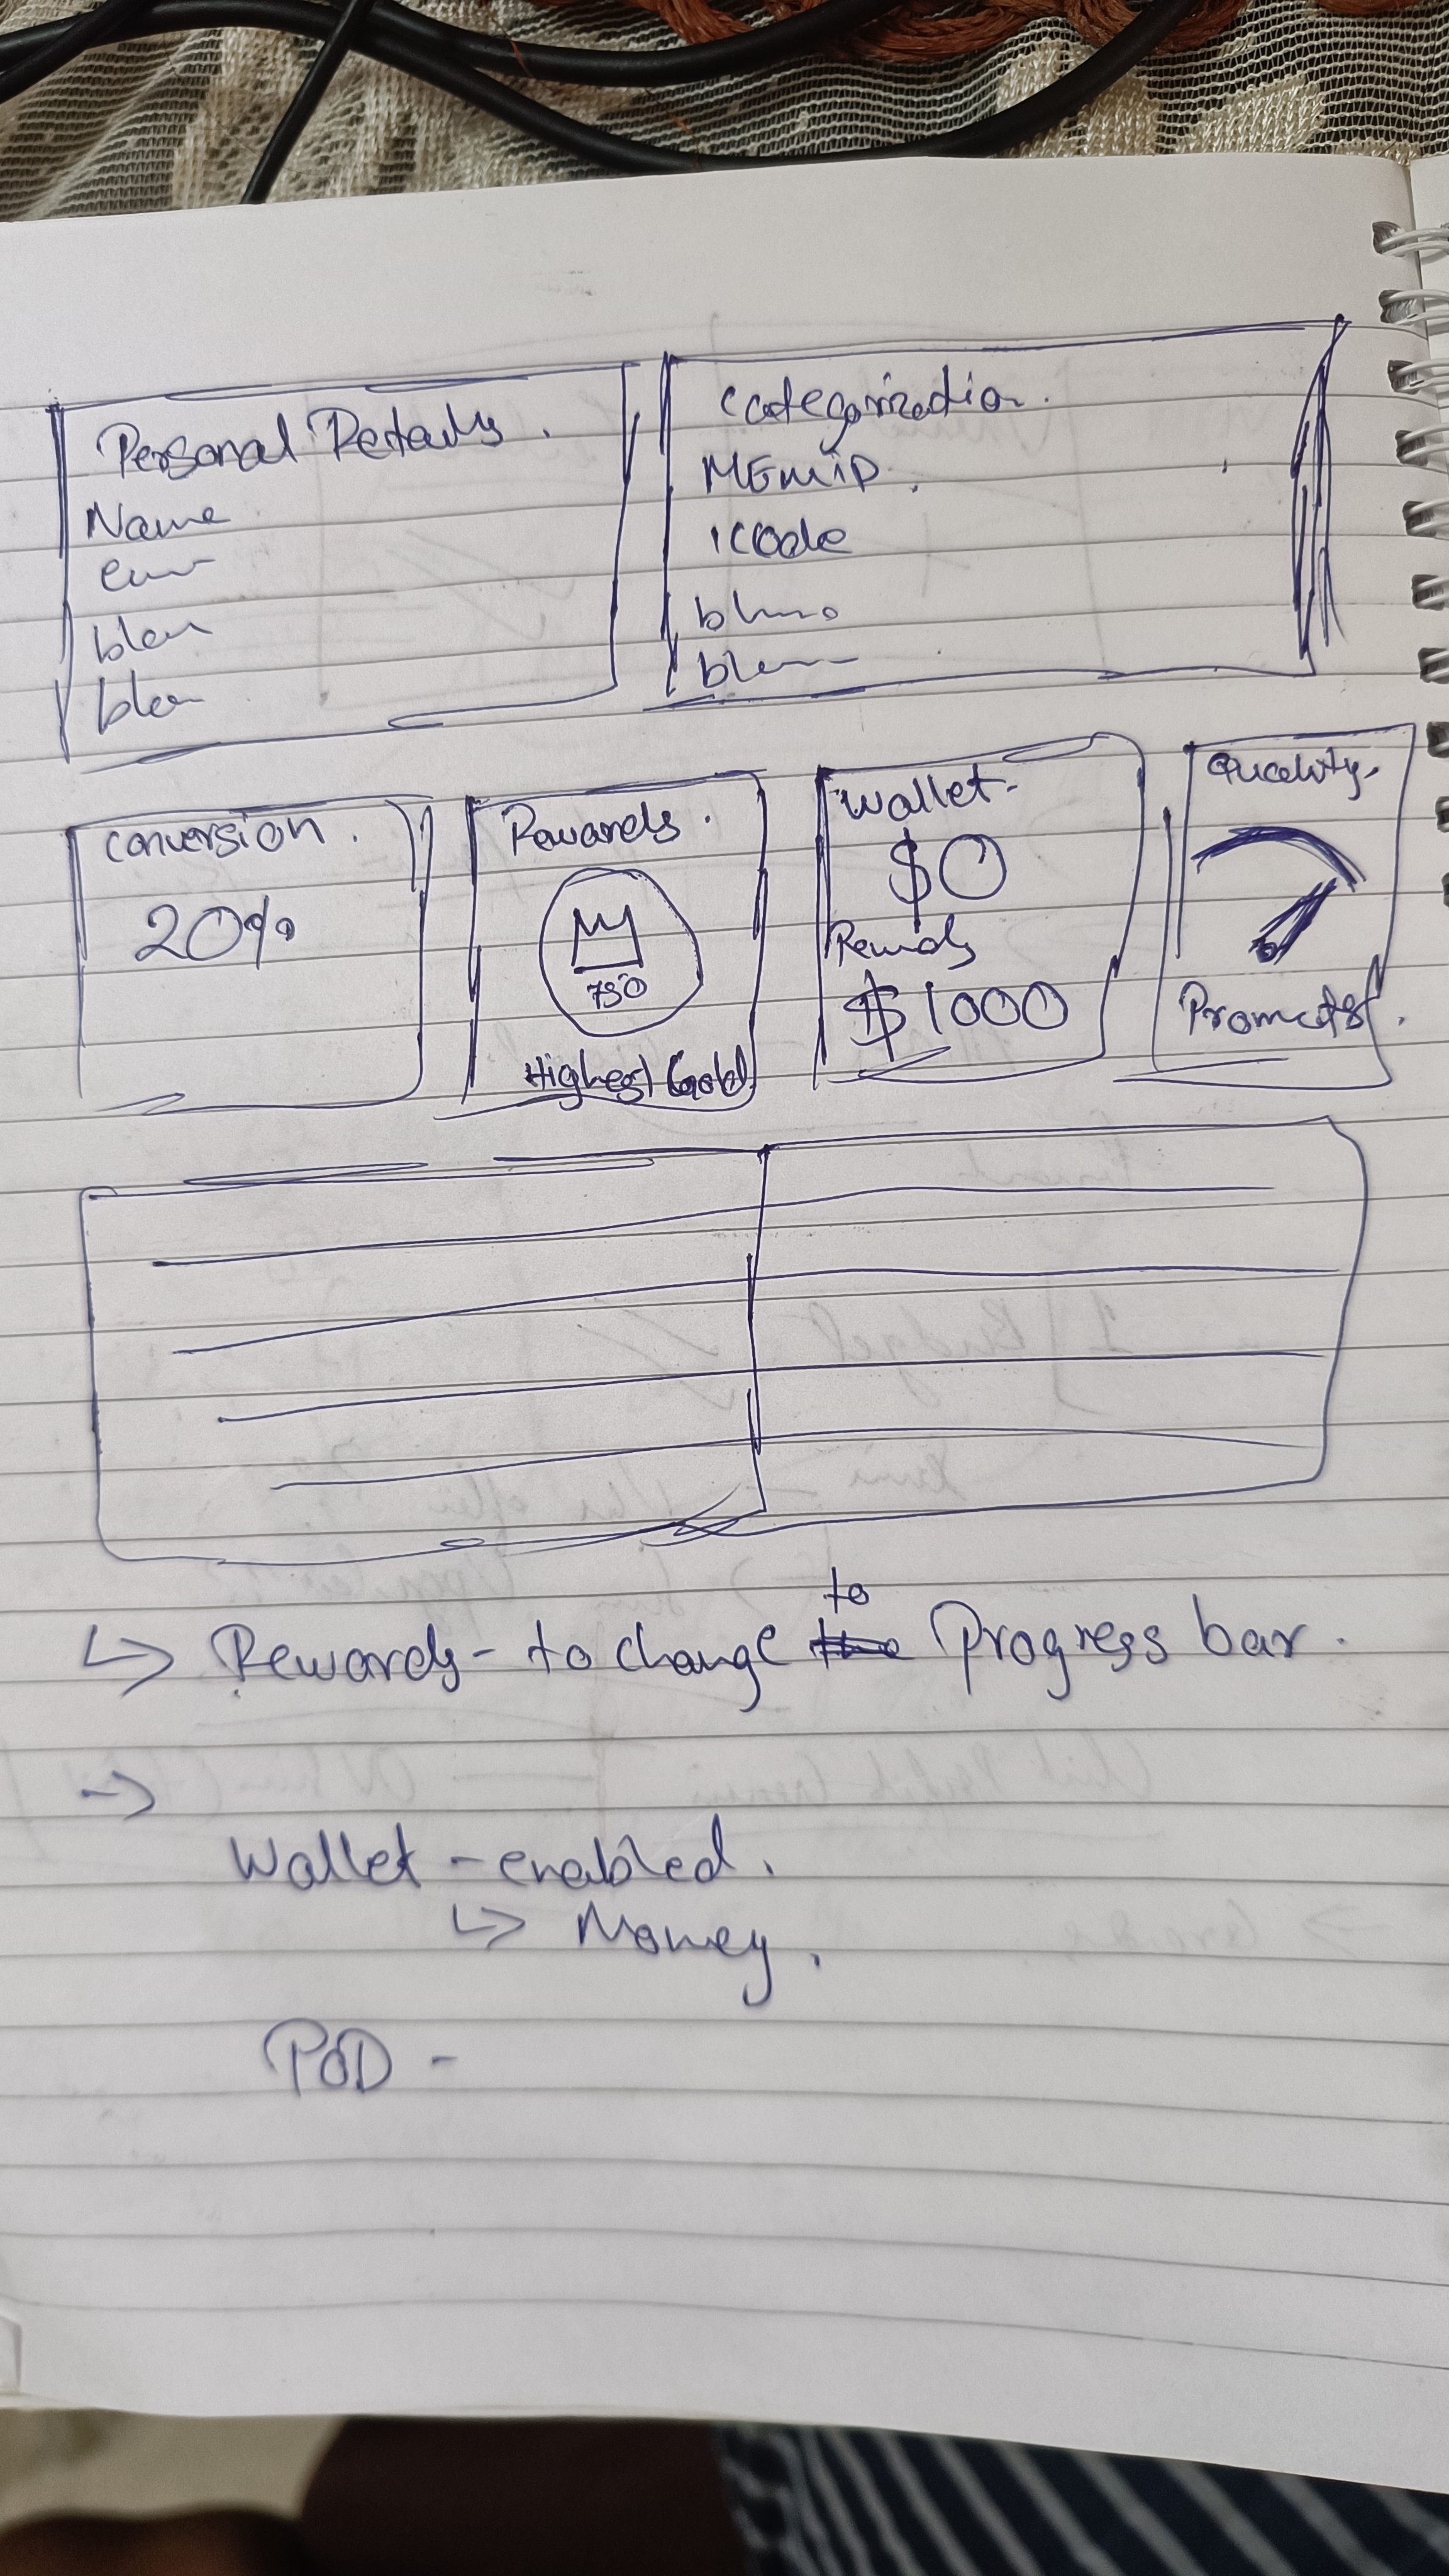 Personal Details.
Name
blen
blen
Categorization.
MEMID.
icode
conversion.
20%
Rewards.
750
Highest Gold
Wallet-
$0
Rewards
$1000
Quality.
Promoter.
↳ Rewards - to change to Progress bar.
→
Wallet - enabled.
↳ Money.
POD -